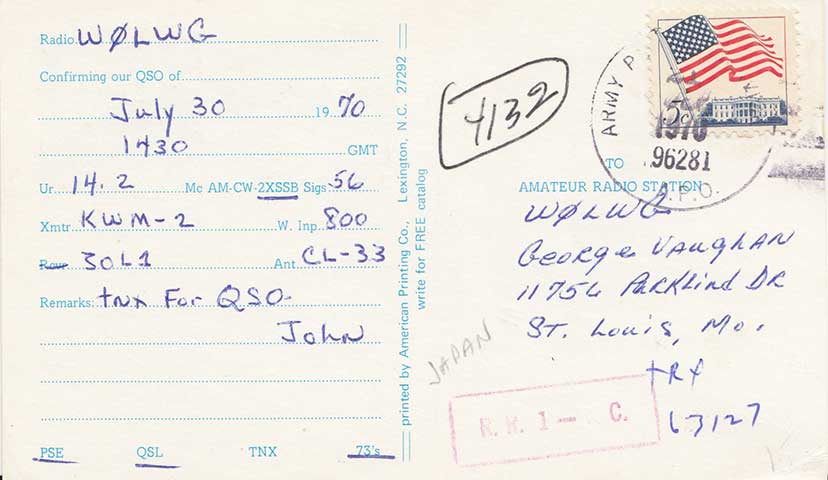 Radio WØLWG
Confirming our QSO of
July 30 1970
1430 GMT
Ur 14.2 Mc AM-CW-2XSSB Sigs 56
Xmtr KWM-2 W. Inp. 800
30L1 Ant CL-33
Remarks: tnx For QSO
John
PSE QSL TNX 73's
printed by American Printing Co., Lexington, N.C. 27292
write for FREE catalog
4132
JAPAN
5c
ARMY
1970
96281
A.P.O.
TO
AMATEUR RADIO STATION
WØLWG
George Vaughan
11756 Parklind Dr
St. Louis, Mo.
63127